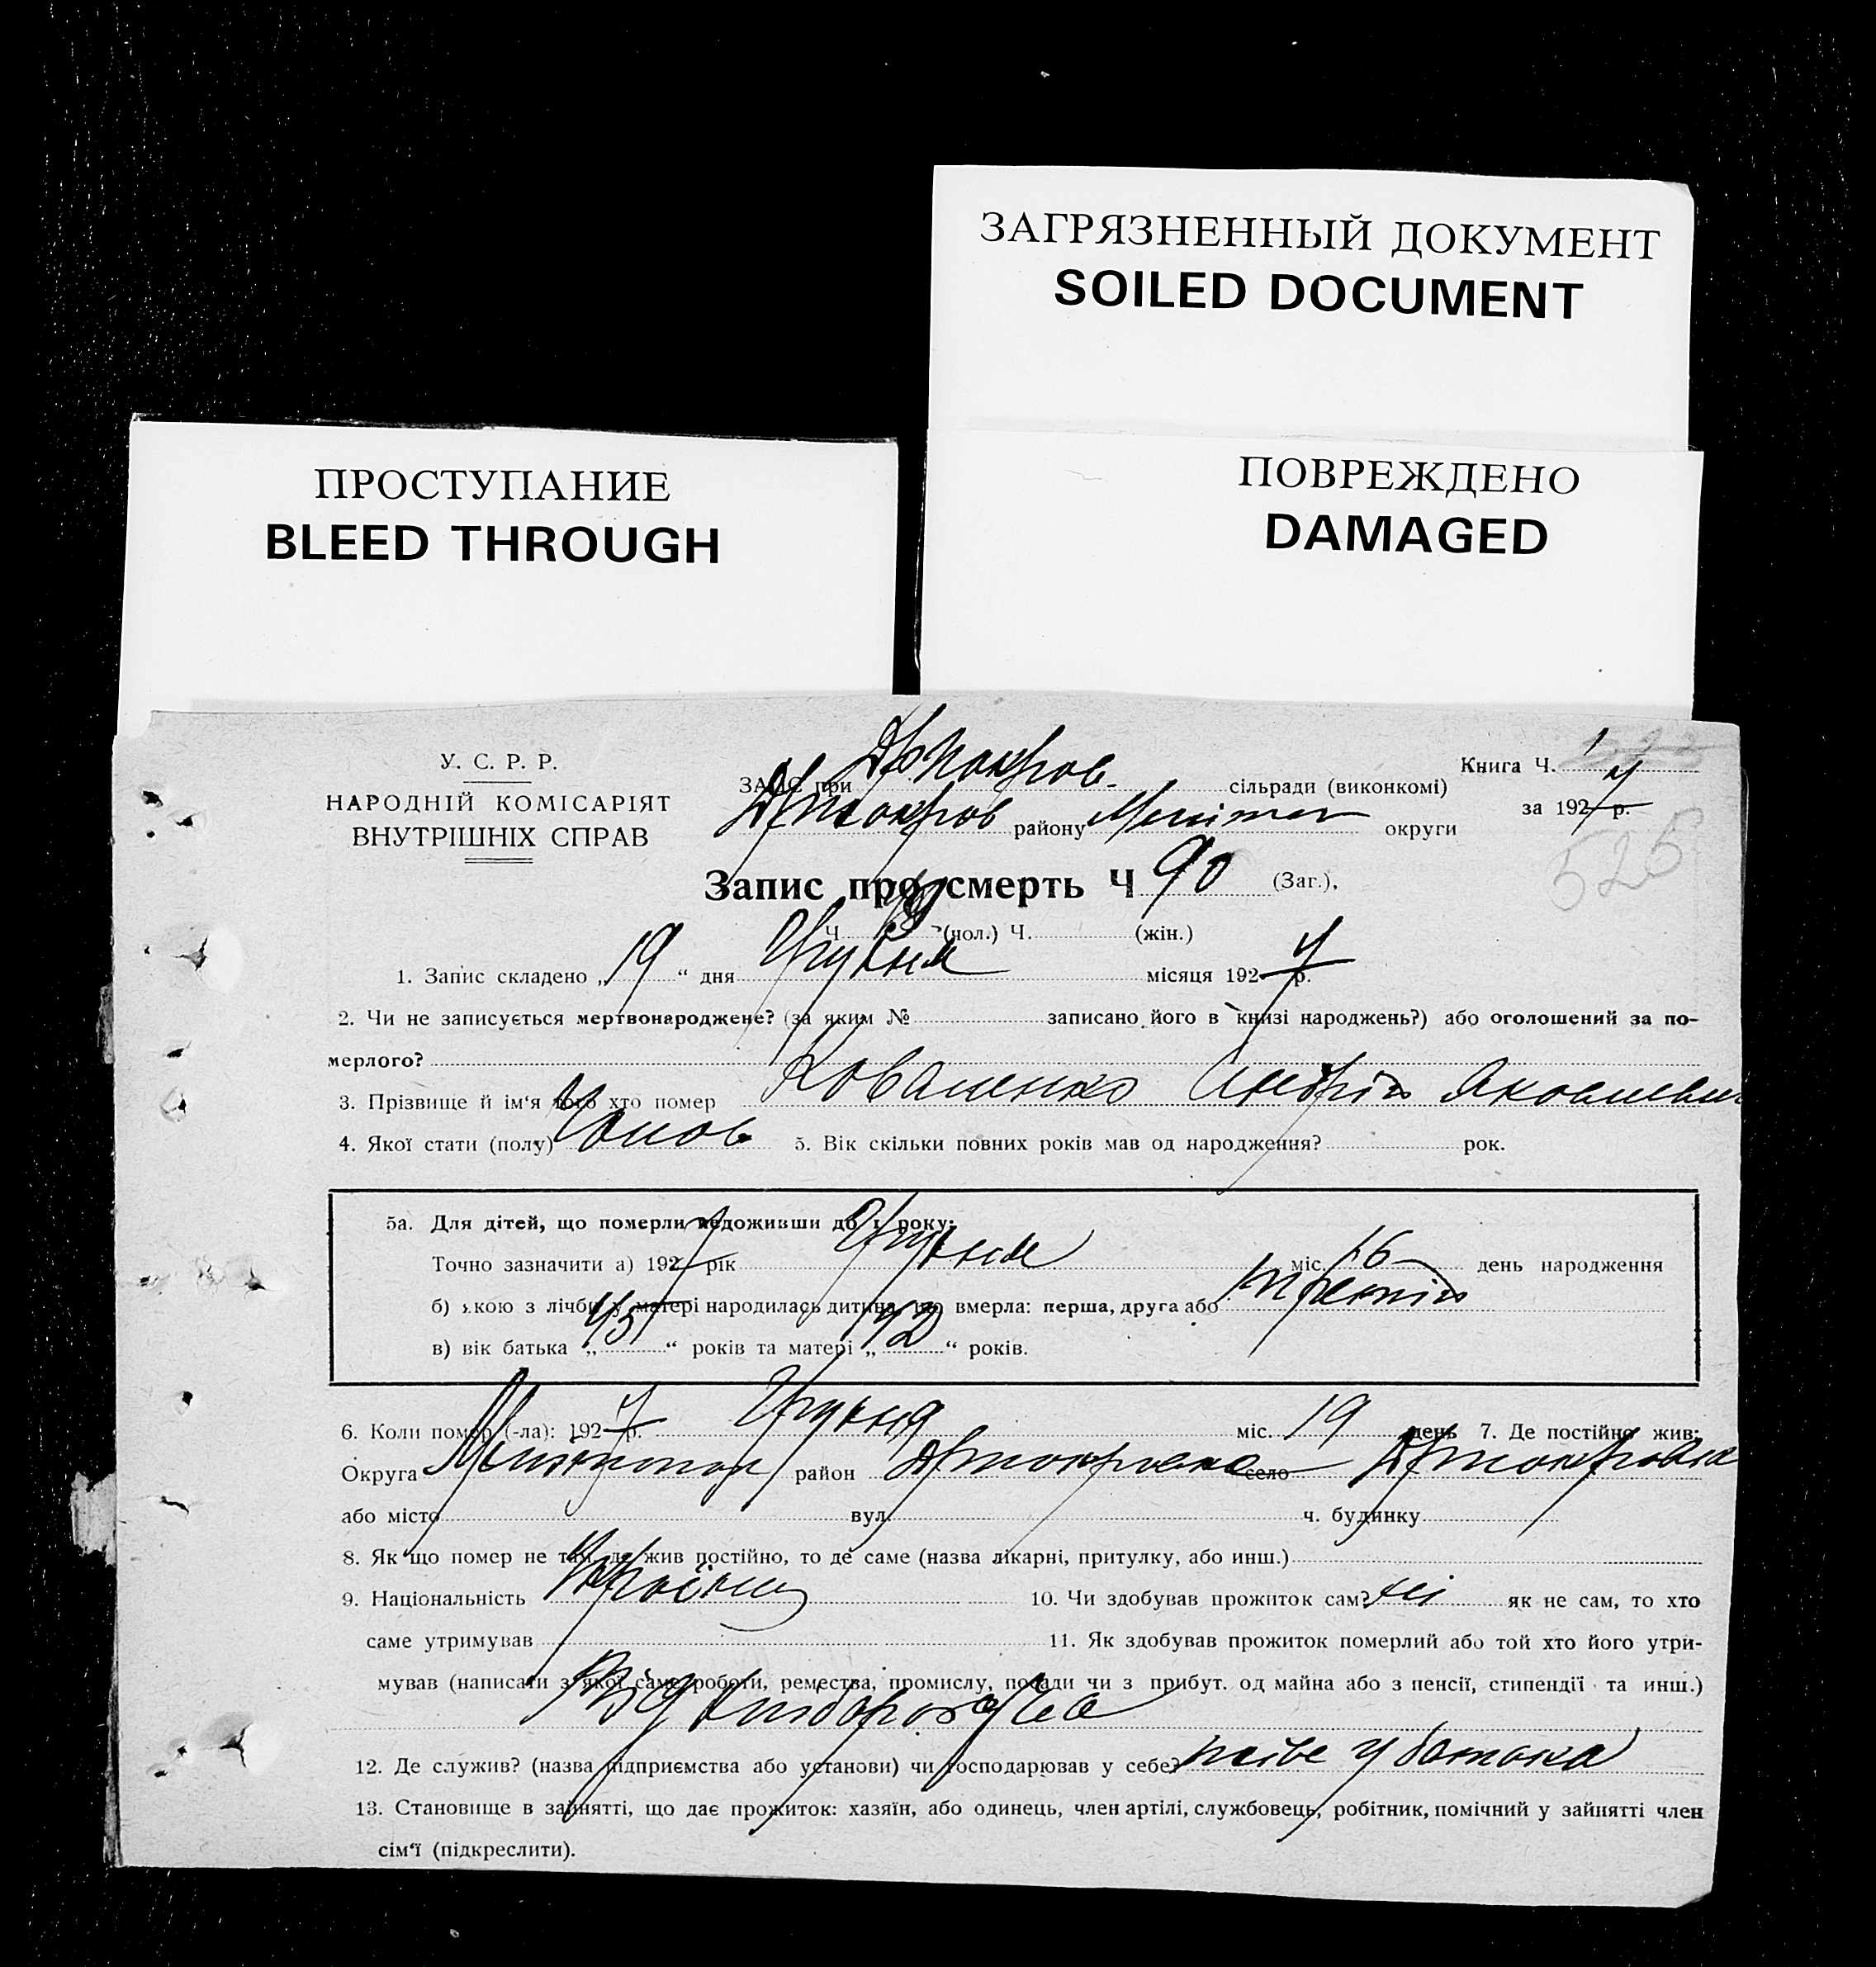 ЗАГРЯЗНЕННЫЙ ДОКУМЕНТ
SOILED DOCUMENT
ПРОСТУПАНИЕ
BLEED THROUGH
ПОВРЕЖДЕНО
DAMAGED
У. С. Р. Р.
НАРОДНІЙ КОМІСАРІЯТ
ВНУТРІШНІХ СПРАВ
ЗАГС при сільради (виконкомі)
району округи
Книга Ч. 1
за 1927 р.
525
Запис про смерть Ч 90 (Заг.),
Ч (чол.) Ч. (жін.)
1. Запис складено „19“ дня Грудня місяця 1927 р.
2. Чи не записується мертвонароджене? (за яким № записано його в книзі народжень?) або оголошений за по-
мерлого?
3. Прізвище й ім‘я того хто помер Коваленко Андрій Яковлевич
4. Якої стати (полу) Чолов 5. Вік скільки повних років мав од народження? рок.
5а. Для дітей, що померли недоживши до 1 року:
Точно зазначити а) 1927 рік Грудня міс. 16 день народження
б) якою з лічби у матері народилась дитина, що вмерла: перша, друга або третій
в) вік батька „45“ років та матері „42“ років.
6. Коли помер (-ла): 1927 р. Грудня міс. 19 день 7. Де постійно жив:
Округа Мелітопол район село
або місто вул. ч. будинку
8. Як що помер не там, де жив постійно, то де саме (назва лікарні, притулку, або инш.)
9. Національність Україн 10. Чи здобував прожиток сам? ні як не сам, то хто
саме утримував 11. Як здобував прожиток померлий або той хто його утри-
мував (написати з якої саме роботи, ремества, промислу, посади чи з прибут. од майна або з пенсії, стипендії та инш.)
Від хлібороб
12. Де служив? (назва підприємства або установи) чи господарював у себе? у батька
13. Становище в зайнятті, що дає прожиток: хазяїн, або одинець, член артілі, службовець, робітник, помічний у зайнятті член
сім‘ї (підкреслити).